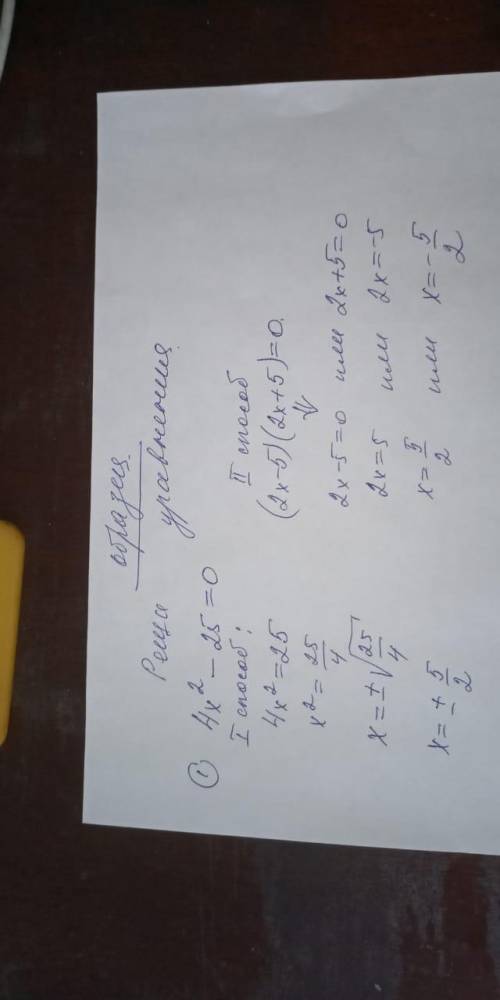 образец
Реши уравнения.
① 4x² − 25 = 0
I способ:
4x² = 25
x² = 25/4
x = ±√(25/4)
x = ± 5/2
II способ
(2x−5)(2x+5)=0.
⇓
2x−5=0 или 2x+5=0
2x=5 или 2x=−5
x=5/2 или x=−5/2